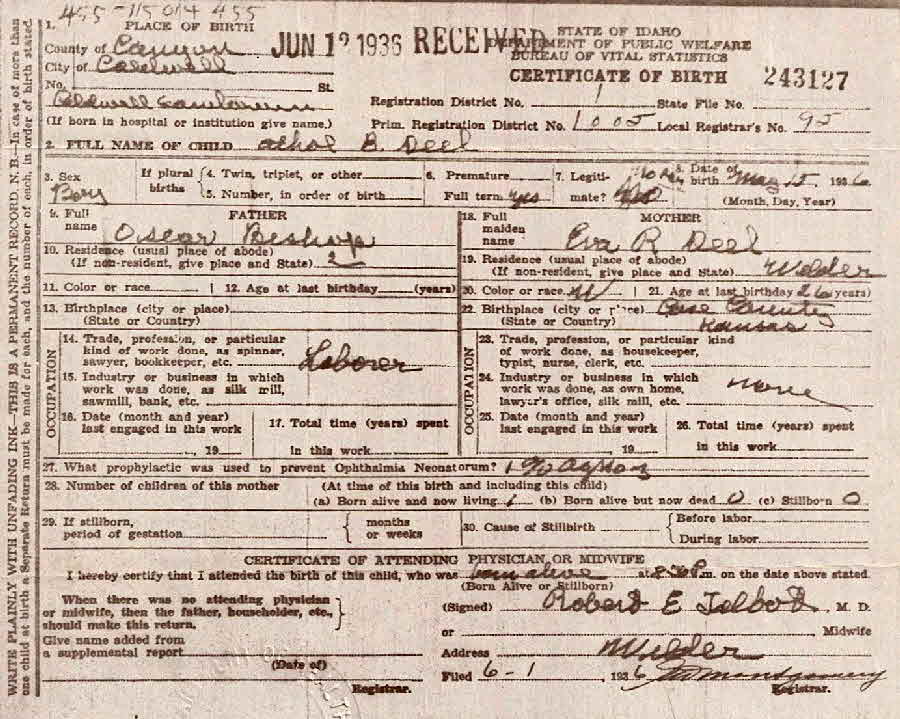 455-115014-455
1. PLACE OF BIRTH
County of Canyon
City of Caldwell
No. St.
Caldwell
(If born in hospital or institution give name.)
JUN 12 1936 RECEIVED
STATE OF IDAHO
DEPARTMENT OF PUBLIC WELFARE
BUREAU OF VITAL STATISTICS
CERTIFICATE OF BIRTH 243127
Registration District No. 1 State File No.
Prim. Registration District No. 1005 Local Registrar's No. 95
2. FULL NAME OF CHILD B. Deel
3. Sex Boy
If plural births { 4. Twin, triplet, or other
5. Number, in order of birth
6. Premature
Full term yes
7. Legitimate?
8. Date of birth May 15 1936
(Month, Day, Year)
FATHER
9. Full name Oscar Bishop
10. Residence (usual place of abode)
(If non-resident, give place and State) 2
11. Color or race 12. Age at last birthday (years)
13. Birthplace (city or place)
(State or Country)
OCCUPATION
14. Trade, profession, or particular
kind of work done, as spinner,
sawyer, bookkeeper, etc. Laborer
15. Industry or business in which
work was done, as silk mill,
sawmill, bank, etc.
16. Date (month and year)
last engaged in this work
19
17. Total time (years) spent
in this work
MOTHER
18. Full maiden name Eva R Deel
19. Residence (usual place of abode)
(If non-resident, give place and State) Wilder
20. Color or race W 21. Age at last birthday 26 years)
22. Birthplace (city or place) County
(State or Country) Kansas
OCCUPATION
23. Trade, profession, or particular kind
of work done, as housekeeper,
typist, nurse, clerk, etc.
24. Industry or business in which
work was done, as own home,
lawyer's office, silk mill, etc. none
25. Date (month and year)
last engaged in this work
19
26. Total time (years) spent
in this work
27. What prophylactic was used to prevent Ophthalmia Neonatorum? 1%
28. Number of children of this mother (At time of this birth and including this child)
(a) Born alive and now living 1 (b) Born alive but now dead 0 (c) Stillborn 0
29. If stillborn,
period of gestation { months
or weeks
30. Cause of Stillbirth { Before labor
During labor
CERTIFICATE OF ATTENDING PHYSICIAN OR MIDWIFE
I hereby certify that I attended the birth of this child, who was born alive at P.m. on the date above stated.
(Born Alive or Stillborn)
When there was no attending physician
or midwife, then the father, householder, etc.,
should make this return. }
(Signed) Robert E Talbot, M. D.
or Midwife
Give name added from
a supplemental report
(Date of)
Registrar.
Address Wilder
Filed 6-1 1936 Montgomery
Registrar.
WRITE PLAINLY WITH UNFADING INK—THIS IS A PERMANENT RECORD. N. B.—In case of more than
one child at birth a Separate Return must be made for each, and the number of each, in order of birth stated